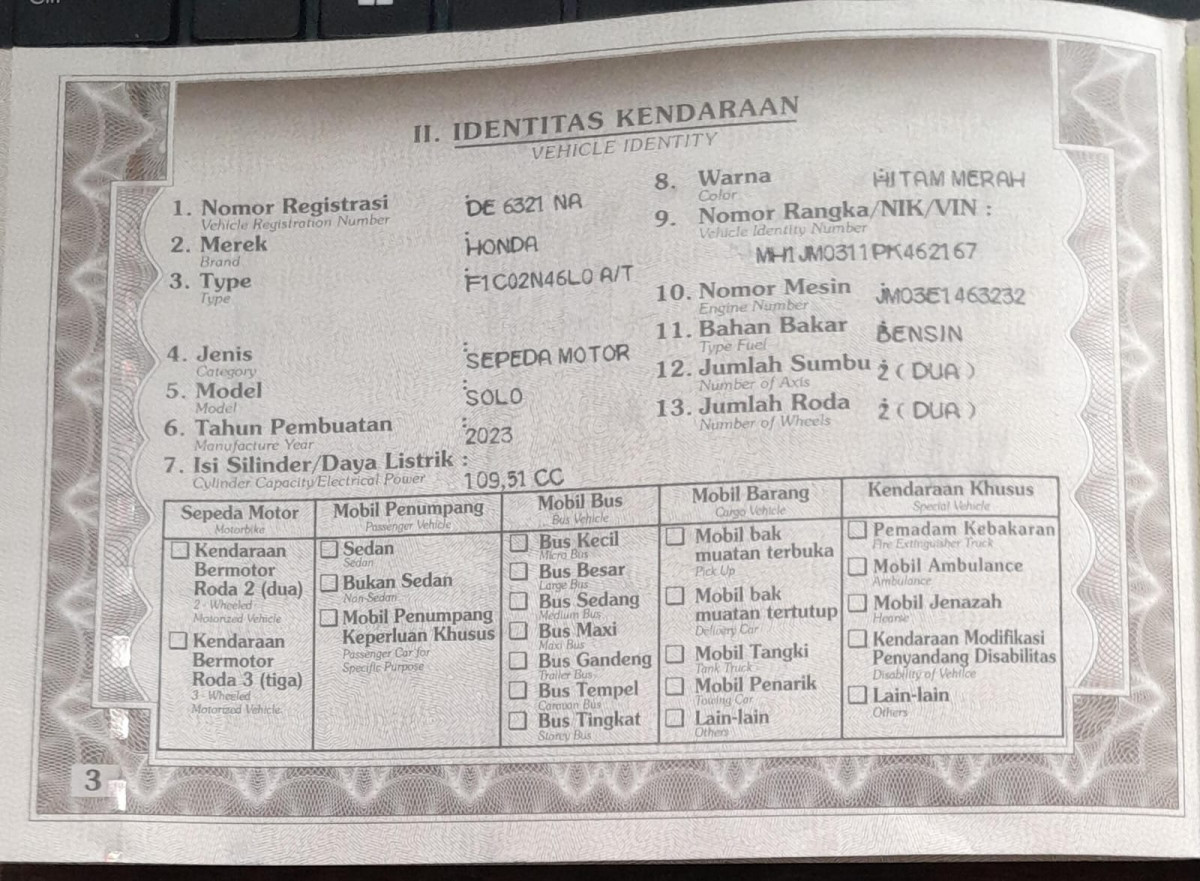 II. IDENTITAS KENDARAAN
VEHICLE IDENTITY
1. Nomor Registrasi : DE 6321 NA
Vehicle Registration Number
2. Merek : HONDA
Brand
3. Type : F1C02N46L0 A/T
Type
4. Jenis : SEPEDA MOTOR
Category
5. Model : SOLO
Model
6. Tahun Pembuatan : 2023
Manufacture Year
7. Isi Silinder/Daya Listrik :
Cylinder Capacity/Electrical Power 109,51 CC
8. Warna : HITAM MERAH
Color
9. Nomor Rangka/NIK/VIN :
Vehicle Identity Number
MH1JM0311PK462167
10. Nomor Mesin : JM03E1463232
Engine Number
11. Bahan Bakar : BENSIN
Type Fuel
12. Jumlah Sumbu : 2 ( DUA )
Number of Axis
13. Jumlah Roda : 2 ( DUA )
Number of Wheels
Sepeda Motor
Motorbike
Kendaraan
Bermotor
Roda 2 (dua)
2 - Wheeled
Motorized Vehicle
Kendaraan
Bermotor
Roda 3 (tiga)
3 - Wheeled
Motorized Vehicle
Mobil Penumpang
Passenger Vehicle
Sedan
Sedan
Bukan Sedan
Non-Sedan
Mobil Penumpang
Keperluan Khusus
Passenger Car for
Specific Purpose
Mobil Bus
Bus Vehicle
Bus Kecil
Micro Bus
Bus Besar
Large Bus
Bus Sedang
Medium Bus
Bus Maxi
Maxi Bus
Bus Gandeng
Trailer Bus
Bus Tempel
Caravan Bus
Bus Tingkat
Storey Bus
Mobil Barang
Cargo Vehicle
Mobil bak
muatan terbuka
Pick Up
Mobil bak
muatan tertutup
Delivery Car
Mobil Tangki
Tank Truck
Mobil Penarik
Towing Car
Lain-lain
Others
Kendaraan Khusus
Special Vehicle
Pemadam Kebakaran
Fire Extinguisher Truck
Mobil Ambulance
Ambulance
Mobil Jenazah
Hearse
Kendaraan Modifikasi
Penyandang Disabilitas
Disability of Vehilce
Lain-lain
Others
3